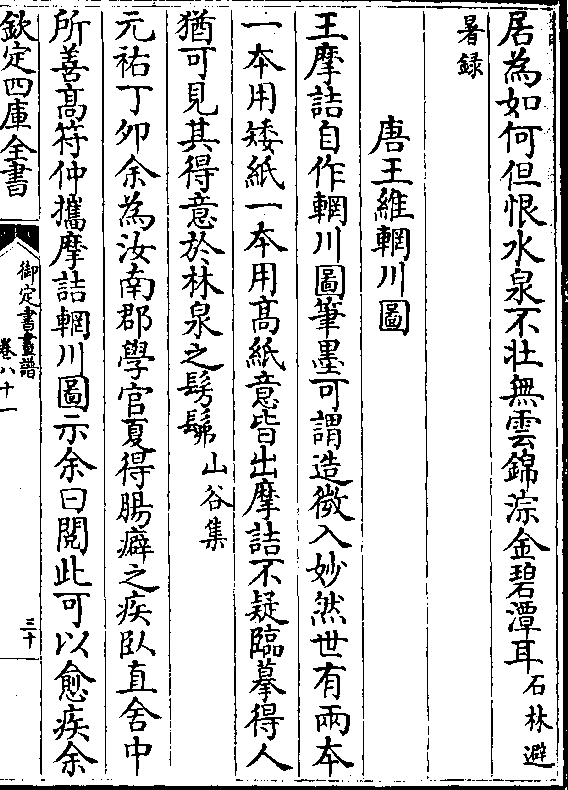 居為如何但恨水泉不壯無雲錦淙金碧潭耳石林避
暑録
唐王維輞川圖
王摩詰自作輞川圖筆墨可謂造微入妙然世有兩本
一本用矮紙一本用髙紙意皆出摩詰不疑臨摹得人
猶可見其得意於林泉之髣髴山谷集
元祐丁夘余為汝南郡學官夏得腸癖之疾臥直舍中
所善髙符仲攜摩詰輞川圖示余曰閱此可以愈疾余
欽定四庫全書
御定書畫譜
卷八十一
三十